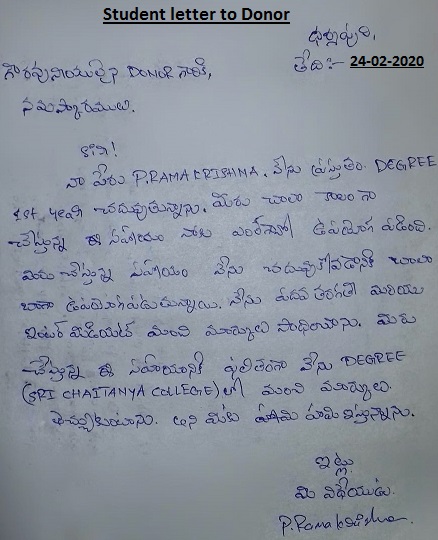 Student letter to Donor
ధర్మపురి,
తేది:- 24-02-2020
గౌరవనీయులైన DONOR గారికి,
నమస్కారములు.
సార్!
నా పేరు P.RAMAKRISHNA. నేను ప్రస్తుతం DEGREE
1st year చదువుతున్నాను. మీరు చాలా కాలం గా
చేస్తున్న ఈ సహాయం నాకు ఎంతగానో ఉపయోగ పడింది.
మీరు చేస్తున్న సహాయం నేను చదువుకోవడానికి చాలా
బాగా ఉపయోగపడుతున్నాయి. నేను పదవ తరగతి మరియు
ఇంటర్ మీడియట్ మంచి మార్కులు సాధించాను. మీరు
చేస్తున్న ఈ సహాయానికి ఫలితంగా నేను DEGREE
(SRI CHAITANYA COLLEGE)లో మంచి మార్కులు
తెచ్చుకుంటాను. అని మీకు హామి ఇస్తున్నాను.
ఇట్లు
మీ విధేయుడు.
P.Ramakrishna